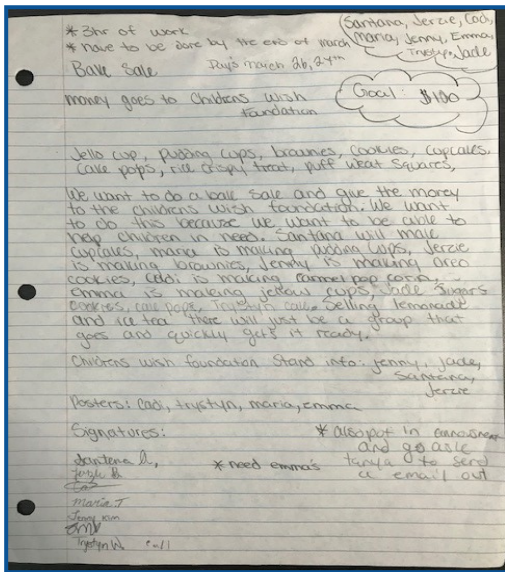 * 3hr of work
* have to be done by the end of march
Santana, Jerzie, Cadi,
maria, Jenny, Emma
Trystyn, Jade
Bake Sale Days march 26, 27th
Goal: $100
money goes to Childrens Wish
Foundation
Jello cup, pudding cups, brownies, cookies, cupcakes,
Cake pops, rice crispy treat, puff weat squares,
We want to do a bake sale and give the money
to the childrens wish foundation. We want
to do this because we want to be able to
help children in need. Santana will make
cupcakes, maria is making pudding cups, Jerzie
is making brownies, Jenny is making oreo
cookies, Cadi is making carmel pop corn,
emma is making jellow cups, Jade sugars
cookies, cake pops, Trystyn cake. Selling lemonade
and ice tea. there will just be a group that
goes and quickly gets it ready.
Childrens wish foundation Stand info: Jenny, Jade,
Santana,
Jerzie
Posters: Cadi, trystyn, maria, emma
Signatures:
* also put in
and go ask
tanya to send
a email out
* need emma's
Santana
Maria T
Jenny Kim
Trystyn W.